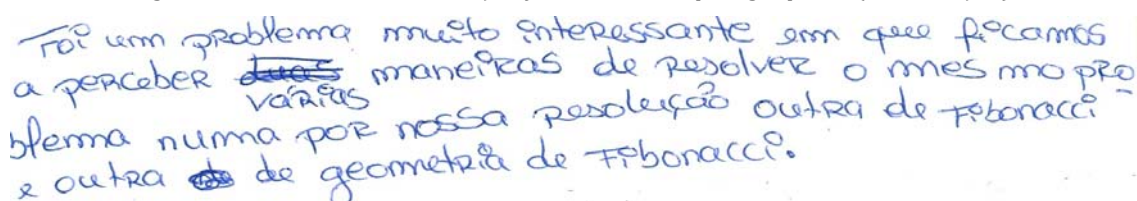 Foi um problema muito interessante em que ficamos
a perceber duas maneiras de resolver o mesmo pro
várias
blema numa por nossa resolução outra de Fibonacci
e outra de geometria de Fibonacci.